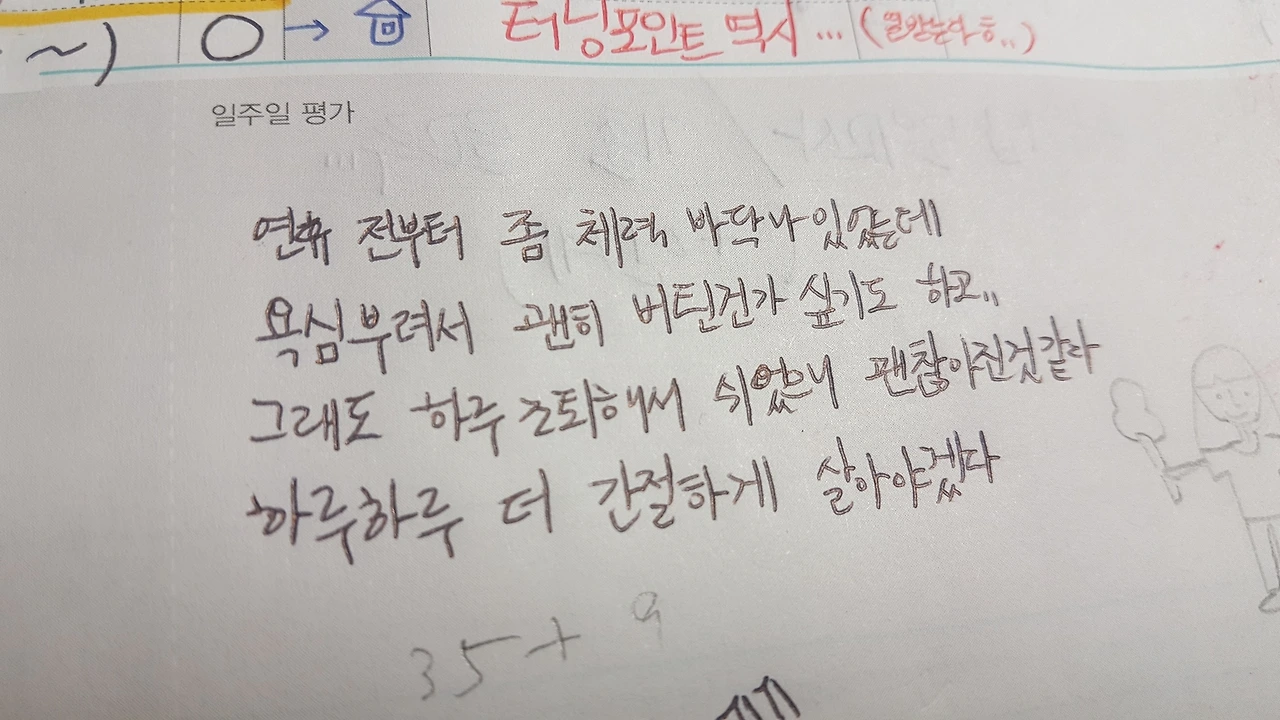 ~)
○ → 터닝포인트 역시 ... (열받는다 ㅎ..)
일주일 평가
연휴 전부터 좀 체력 바닥나있었는데
욕심부려서 괜히 버틴건가 싶기도 하고..
그래도 하루 조퇴해서 쉬었으니 괜찮아진것같다
하루하루 더 간절하게 살아야겠다
35+ 9